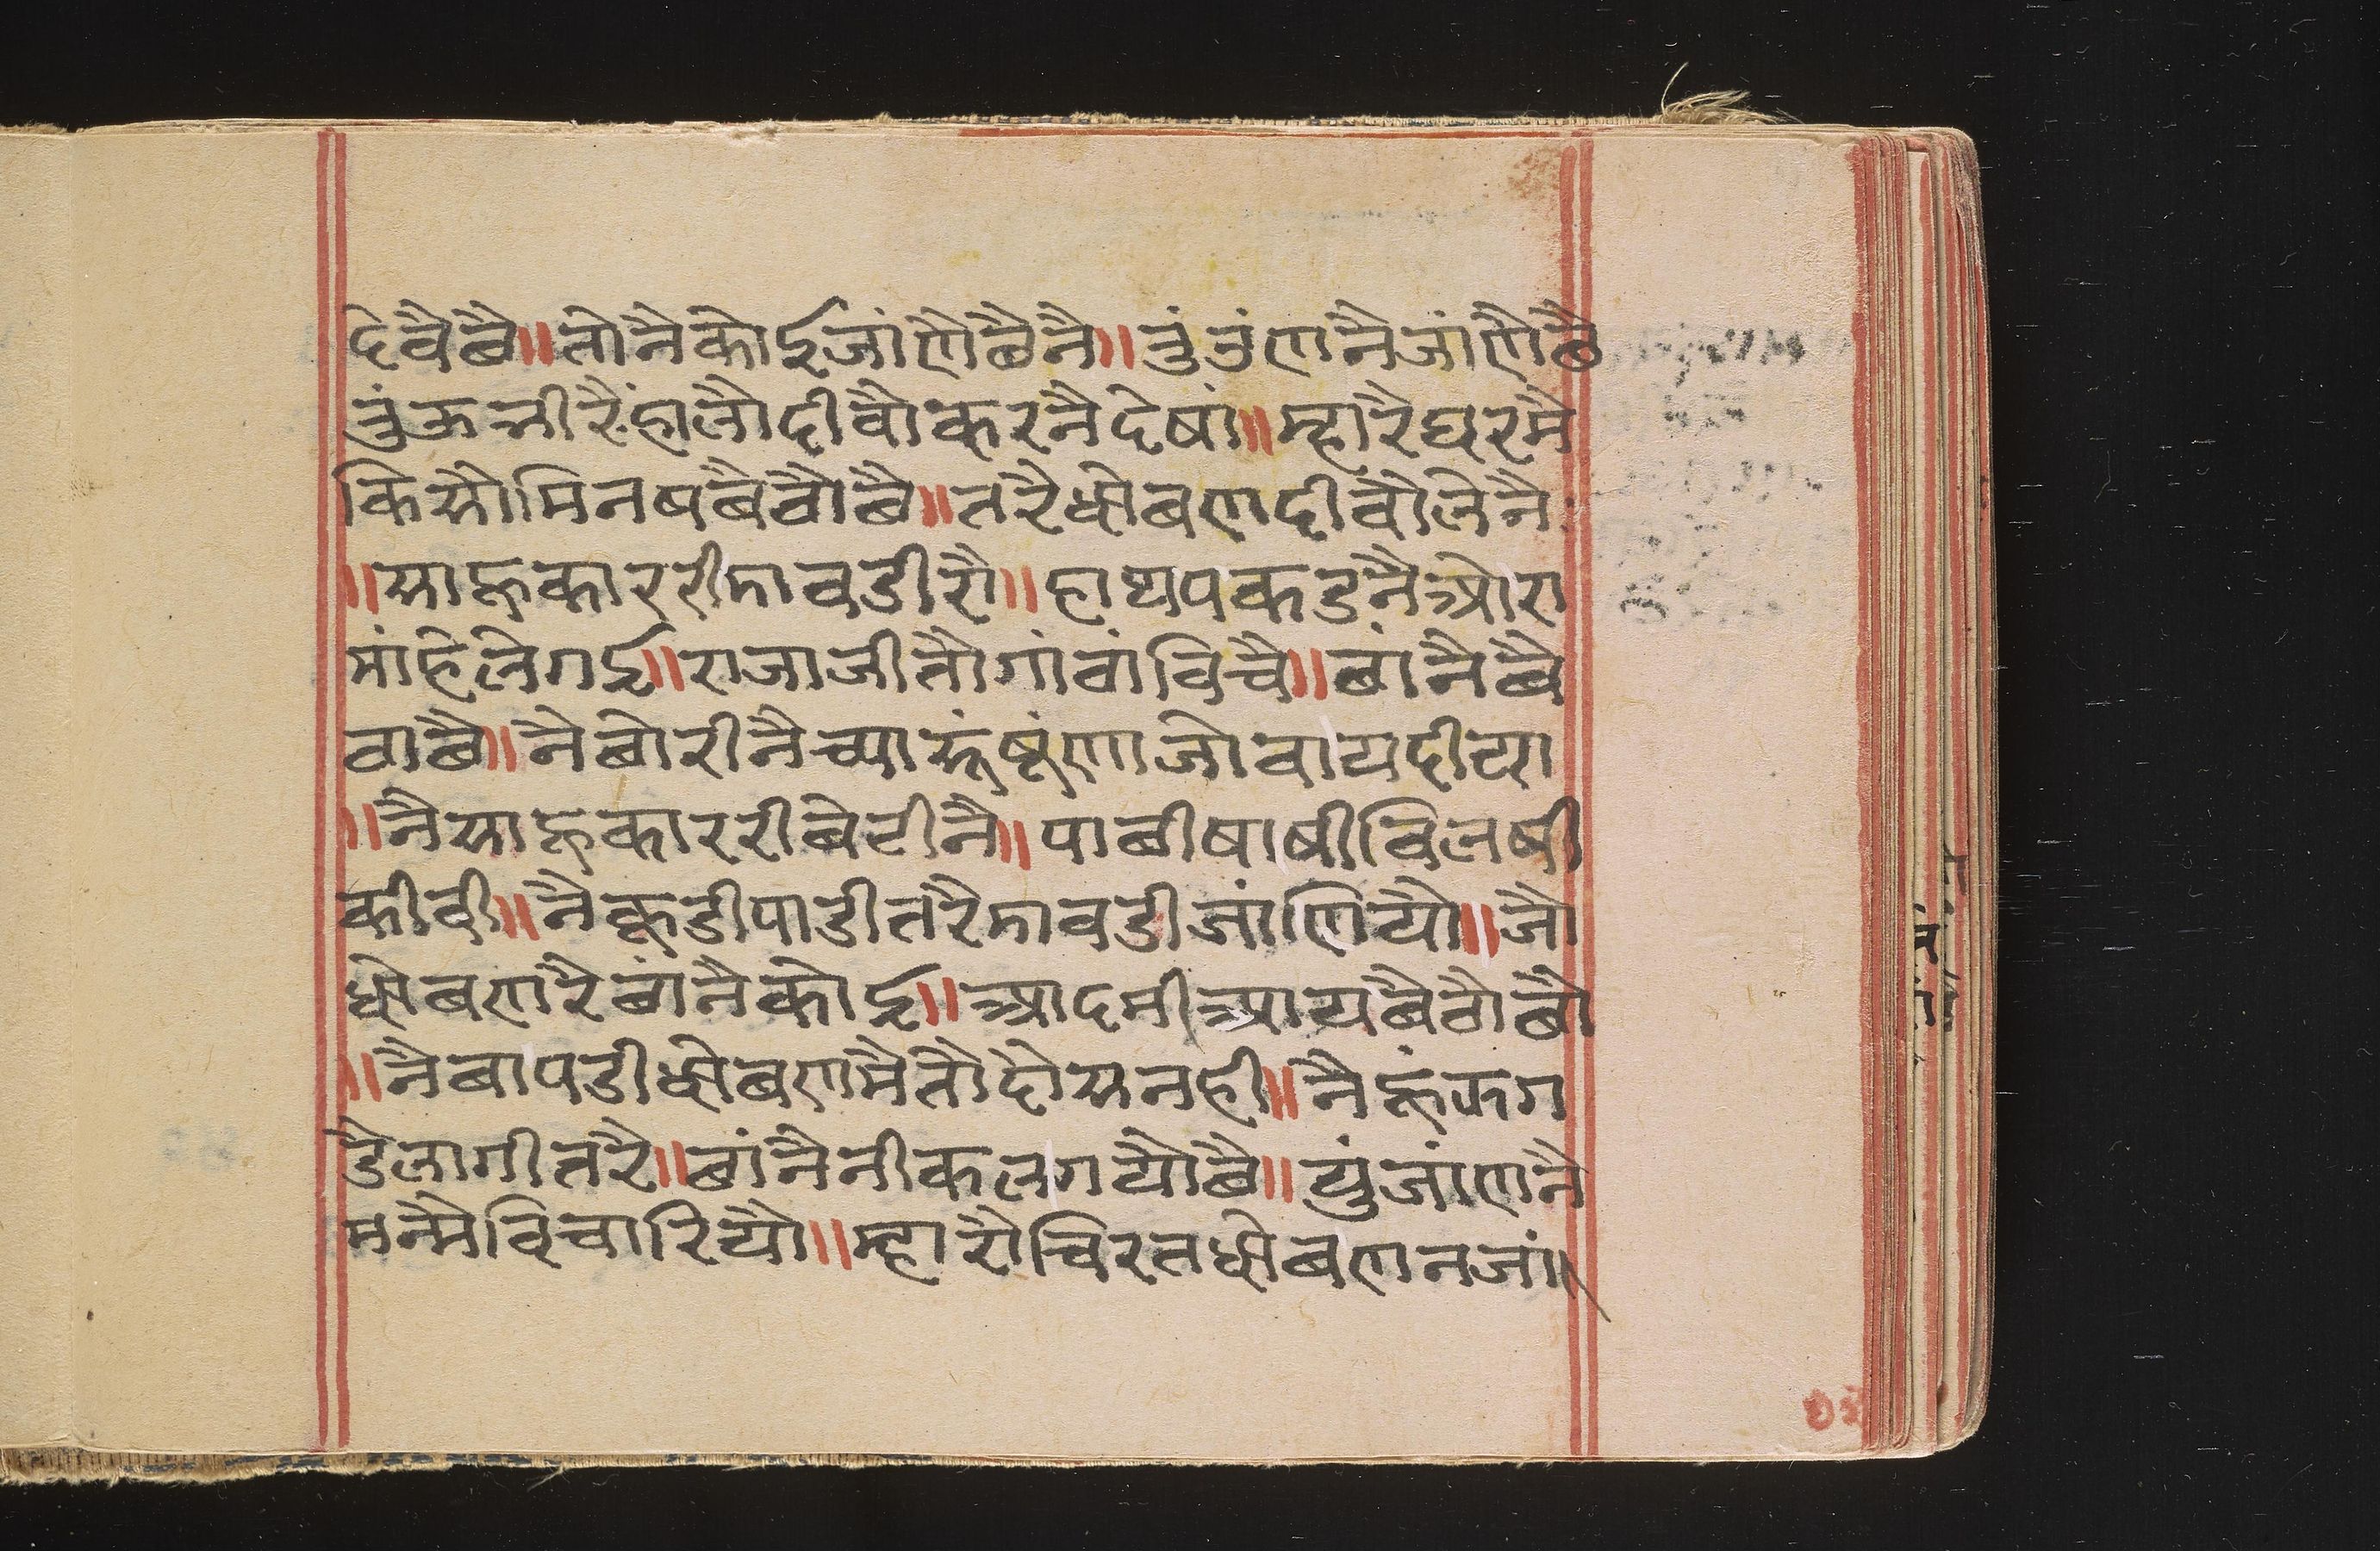 देवैछै॥तोनैकोईजांणैछैनै॥तुंतुंणनैजांणैछै
तुंऊन्नीरैंहालौदीवौकरनैदेषां॥म्हारैघरमै
किसौमिनषछैवौछै॥तरैधोबणदीवौलेनै
॥साहूकाररीमावडीरौ॥हाथपकडनैओरा
मांहेलेगई॥राजाजीतौगांवांविचै॥छांनैछै
वाछै॥नैछोरीनैच्यासूंषूंणाजोवायदीया
॥नैसाहूकाररीबेटीनै॥पाछीषाषीविलषी
कीवी॥नैकूडीपाडीतरैमावडीजांणियौ॥जौ
धोबणरैछांनैकोई॥आदमीआयछैवौछौ
॥नैबापडीधोबणमैतौदोसनही॥नैहूंऊग
डैलागीतरै॥छांनैनीकलगयौछै॥युंजांणनै
मनमैविचारियौ॥म्हारौचिरतधोबणनजां